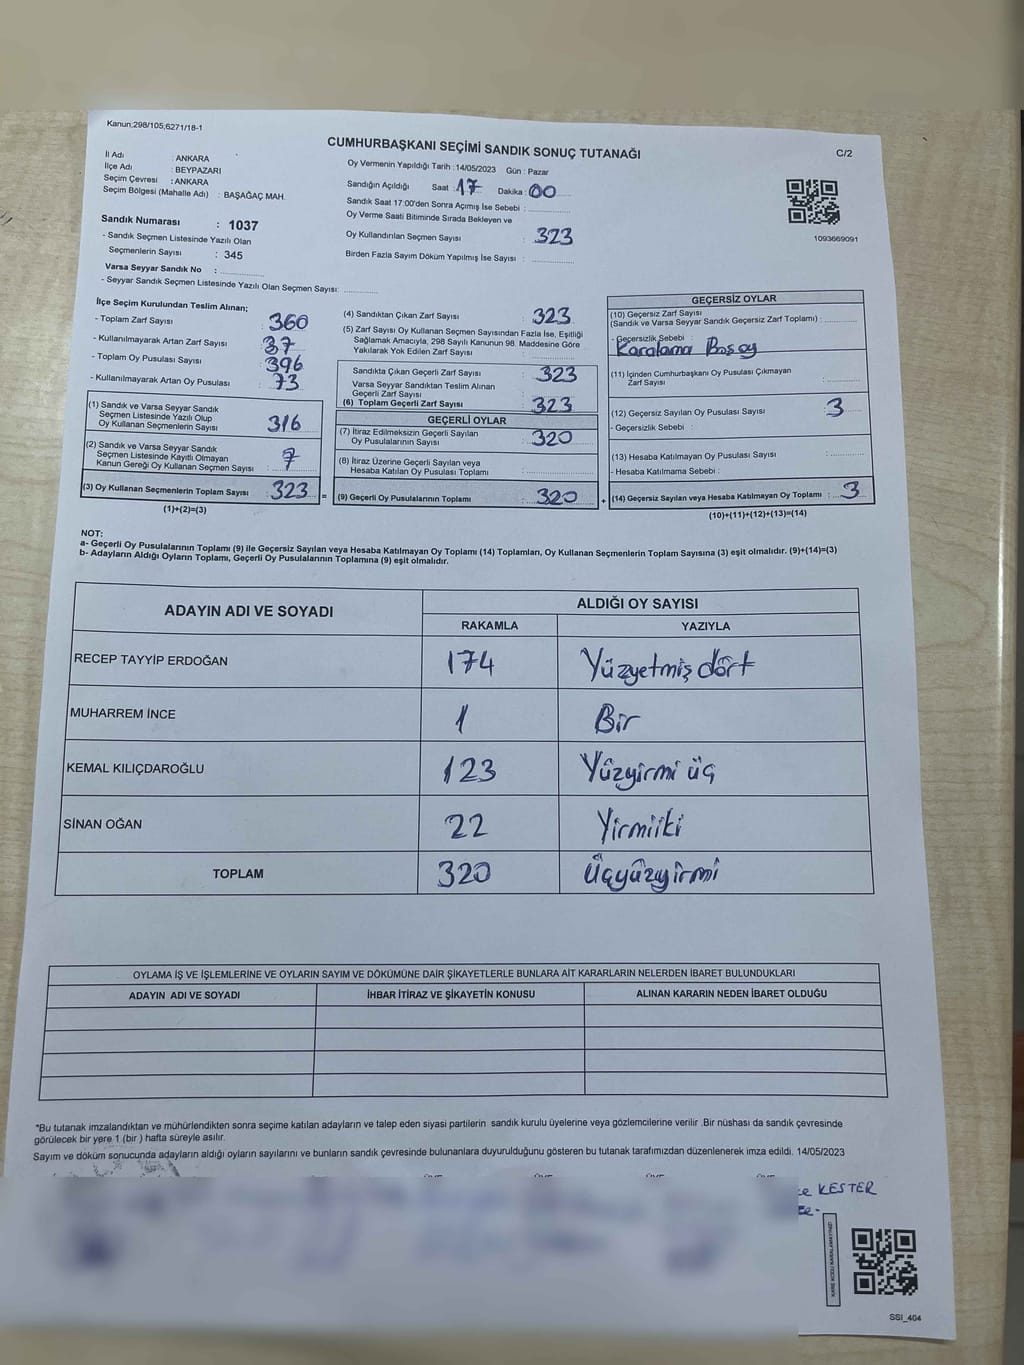 Kanun;298/105,6271/18-1
CUMHURBAŞKANI SEÇİMİ SANDIK SONUÇ TUTANAĞI
C/2
İl Adı : ANKARA
İlçe Adı : BEYPAZARI
Seçim Çevresi : ANKARA
Seçim Bölgesi (Mahalle Adı) : BAŞAĞAÇ MAH.
Sandık Numarası : 1037
- Sandık Seçmen Listesinde Yazılı Olan
Seçmenlerin Sayısı : 345
Varsa Seyyar Sandık No : ....................
- Seyyar Sandık Seçmen Listesinde Yazılı Olan Seçmen Sayısı: ..............
Oy Vermenin Yapıldığı Tarih : 14/05/2023 Gün : Pazar
Sandığın Açıldığı Saat : 17 Dakika : 00
Sandık Saat 17:00'den Sonra Açımış İse Sebebi : ..............
Oy Verme Saati Bitiminde Sırada Bekleyen ve
Oy Kullandırılan Seçmen Sayısı : 323
Birden Fazla Sayım Döküm Yapılmış İse Sayısı : ..............
1093669091
İlçe Seçim Kurulundan Teslim Alınan;
- Toplam Zarf Sayısı : 360
- Kullanılmayarak Artan Zarf Sayısı : 37
- Toplam Oy Pusulası Sayısı : 396
- Kullanılmayarak Artan Oy Pusulası : 73
(1) Sandık ve Varsa Seyyar Sandık
Seçmen Listesinde Yazılı Olup
Oy Kullanan Seçmenlerin Sayısı : 316
(2) Sandık ve Varsa Seyyar Sandık
Seçmen Listesinde Kayıtlı Olmayan
Kanun Gereği Oy Kullanan Seçmen Sayısı : 7
(3) Oy Kullanan Seçmenlerin Toplam Sayısı : 323 =
(1)+(2)=(3)
(4) Sandıktan Çıkan Zarf Sayısı : 323
(5) Zarf Sayısı Oy Kullanan Seçmen Sayısından Fazla İse, Eşitliği
Sağlamak Amacıyla, 298 Sayılı Kanunun 98. Maddesine Göre
Yakılarak Yok Edilen Zarf Sayısı : ..............
Sandıkta Çıkan Geçerli Zarf Sayısı : 323
Varsa Seyyar Sandıktan Teslim Alınan
Geçerli Zarf Sayısı : ..............
(6) Toplam Geçerli Zarf Sayısı : 323
GEÇERLİ OYLAR
(7) İtiraz Edilmeksizin Geçerli Sayılan
Oy Pusulalarının Sayısı : 320
(8) İtiraz Üzerine Geçerli Sayılan veya
Hesaba Katılan Oy Pusulası Toplamı : ..............
(9) Geçerli Oy Pusulalarının Toplamı : 320 +
GEÇERSİZ OYLAR
(10) Geçersiz Zarf Sayısı
(Sandık ve Varsa Seyyar Sandık Geçersiz Zarf Toplamı) : ..........
- Geçersizlik Sebebi :
Karalama Boş oy
(11) İçinden Cumhurbaşkanı Oy Pusulası Çıkmayan
Zarf Sayısı : ..........
(12) Geçersiz Sayılan Oy Pusulası Sayısı : 3
- Geçersizlik Sebebi :
(13) Hesaba Katılmayan Oy Pusulası Sayısı : ..........
- Hesaba Katılmama Sebebi :
(14) Geçersiz Sayılan veya Hesaba Katılmayan Oy Toplamı : 3
(10)+(11)+(12)+(13)=(14)
NOT:
a- Geçerli Oy Pusulalarının Toplamı (9) ile Geçersiz Sayılan veya Hesaba Katılmayan Oy Toplamı (14) Toplamları, Oy Kullanan Seçmenlerin Toplam Sayısına (3) eşit olmalıdır. (9)+(14)=(3)
b- Adayların Aldığı Oyların Toplamı, Geçerli Oy Pusulalarının Toplamına (9) eşit olmalıdır.
ADAYIN ADI VE SOYADI
ALDIĞI OY SAYISI
RAKAMLA YAZIYLA
RECEP TAYYİP ERDOĞAN 174 Yüzyetmiş dört
MUHARREM İNCE 1 Bir
KEMAL KILIÇDAROĞLU 123 Yüzyirmi üç
SİNAN OĞAN 22 Yirmiiki
TOPLAM 320 Üçyüzyirmi
OYLAMA İŞ VE İŞLEMLERİNE VE OYLARIN SAYIM VE DÖKÜMÜNE DAİR ŞİKAYETLERLE BUNLARA AİT KARARLARIN NELERDEN İBARET BULUNDUKLARI
ADAYIN ADI VE SOYADI İHBAR İTİRAZ VE ŞİKAYETİN KONUSU ALINAN KARARIN NEDEN İBARET OLDUĞU
*Bu tutanak imzalandıktan ve mühürlendikten sonra seçime katılan adayların ve talep eden siyasi partilerin sandık kurulu üyelerine veya gözlemcilerine verilir .Bir nüshası da sandık çevresinde
görülecek bir yere 1 (bir ) hafta süreyle asılır.
Sayım ve döküm sonucunda adayların aldığı oyların sayılarını ve bunların sandık çevresinde bulunanlara duyurulduğunu gösteren bu tutanak tarafımızdan düzenlenerek imza edildi. 14/05/2023
KESTER
KARE KODU KARALAMAYINIZ!
SSI_404